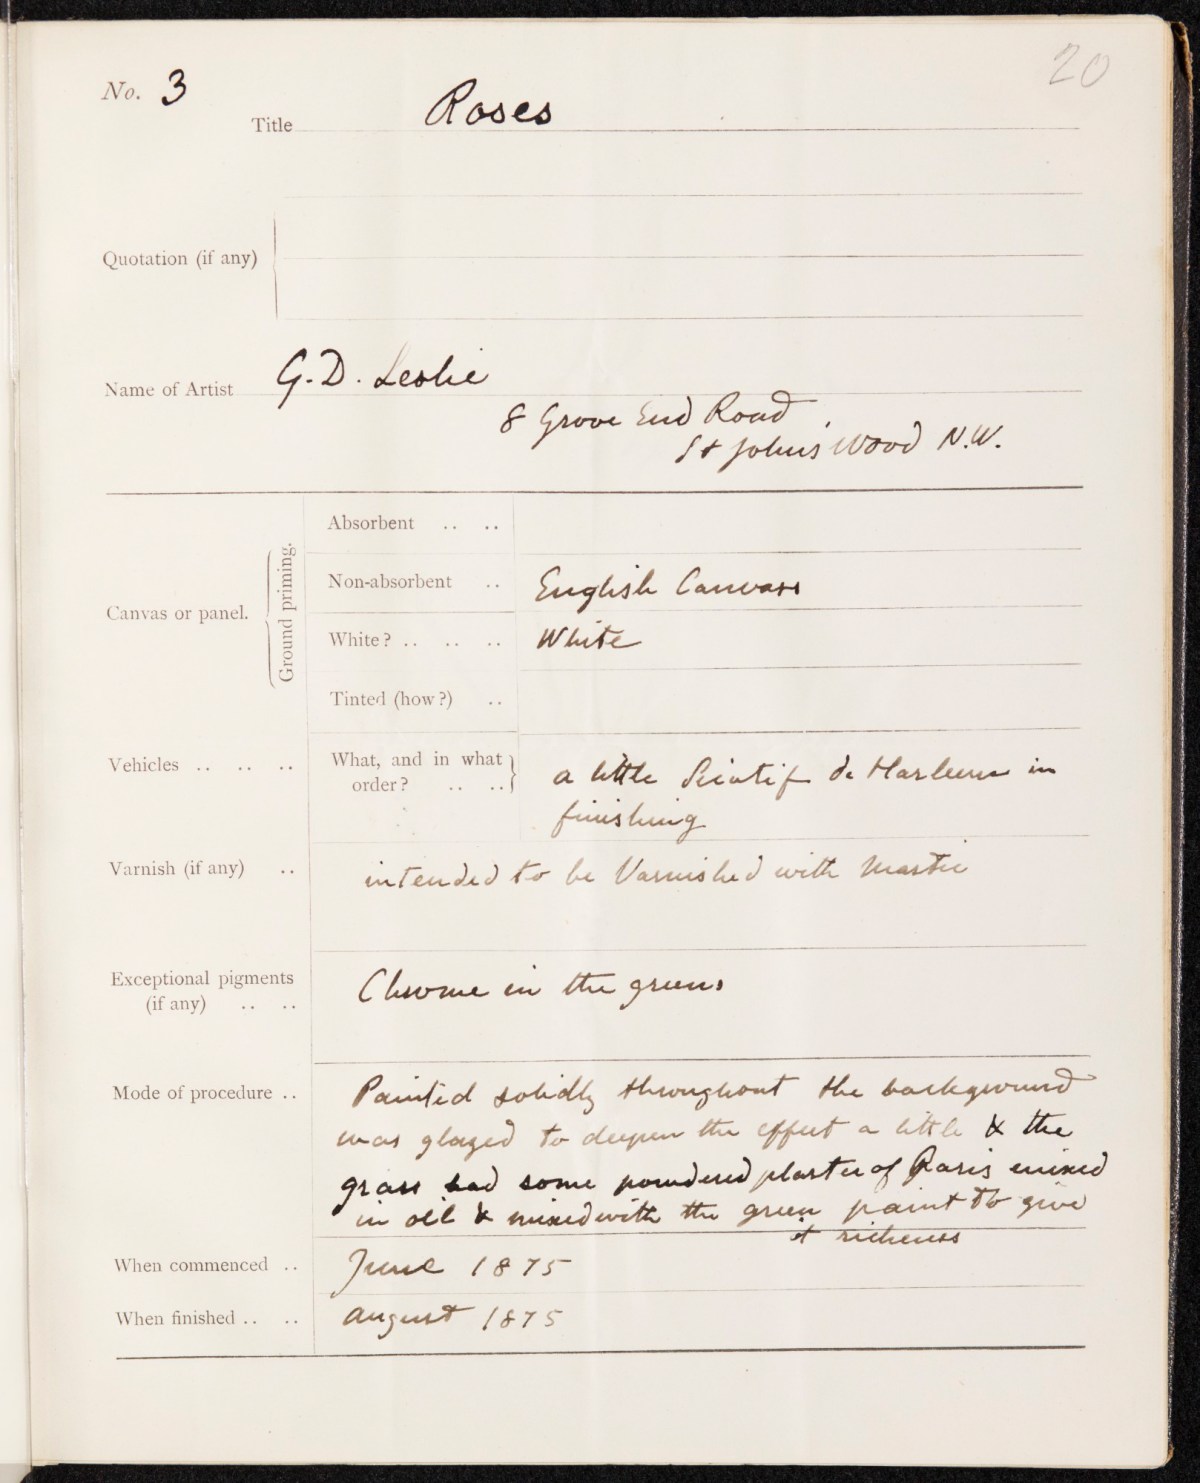 20
No. 3
Title Roses
Quotation (if any)
Name of Artist G. D. Leslie
8 Grove End Road
St Johns' Wood N.W.
Canvas or panel.
Ground priming.
Absorbent .. ..
Non-absorbent .. English Canvass
White? .. .. .. White
Tinted (how?) ..
Vehicles .. .. .. What, and in what
order? .. .. a little Siccatif de Harlem in
finishing
Varnish (if any) .. intended to be Varnished with Mastic
Exceptional pigments
(if any) .. .. Chrome in the greens
Mode of procedure .. Painted solidly throughout the background
was glazed to deepen the effect a little & the
grass had some powdered plaster of Paris mixed
in oil & mixed with the green paint to give
it richness
When commenced .. June 1875
When finished .. .. August 1875